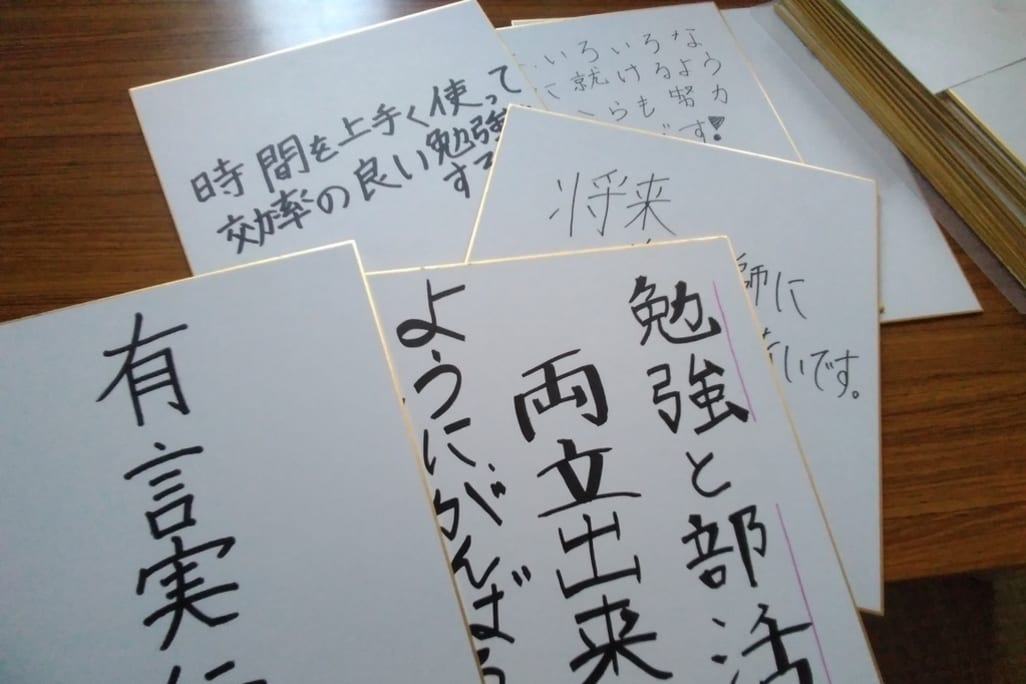 時間を上手く使って
効率の良い勉強
すて
いろいろな
就けるよう
らも努力
す!
将来
師に
いです。
勉強と部活
両立出来
ようにがんばろ
有言実行